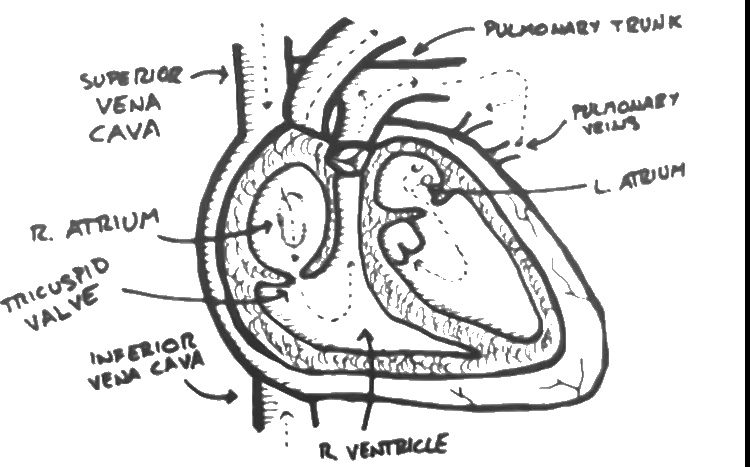 PULMONARY TRUNK
SUPERIOR
VENA
CAVA
PULMONARY
VEINS
L. ATRIUM
R. ATRIUM
TRICUSPID
VALVE
INFERIOR
VENA CAVA
R. VENTRICLE